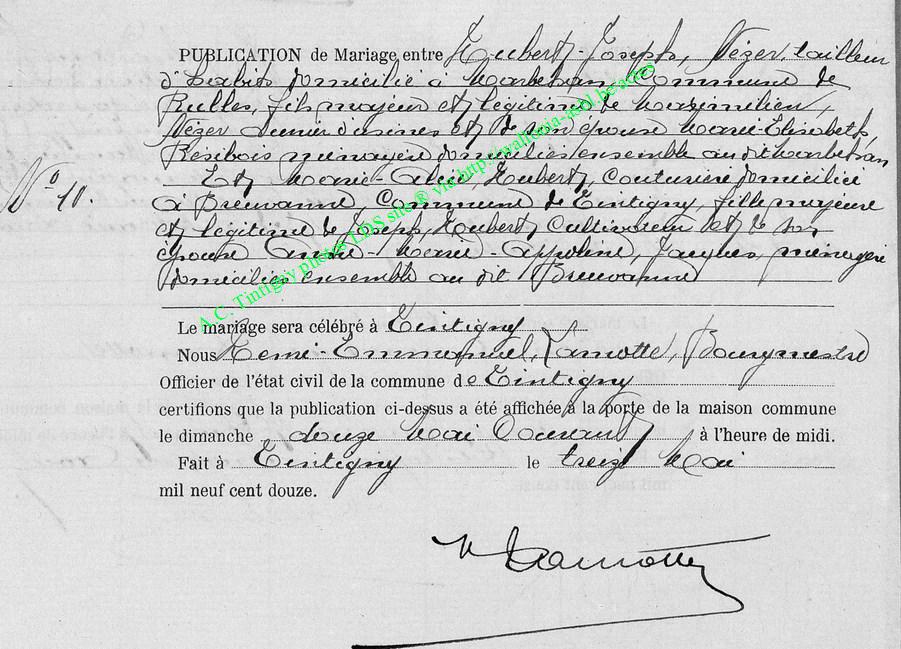 PUBLICATION de Mariage entre Hubert-Joseph, Nézer, tailleur
d'habits domicilié à Marbehan, Commune de
Rulles, fils majeur et légitime de Maximilien,
Nézer ouvrier d'usines et de son épouse Marie-Elisabeth,
Résibois ménagère domiciliés ensemble au dit Marbehan
N° 10.
Et Marie-Alice, Hubert, Couturière domiciliée
à Breuvanne, Commune de Tintigny, fille majeure
et légitime de Joseph, Hubert Cultivateur et de son
épouse Marie-Appoline, Jacques, ménagère
domiciliés ensemble au dit Breuvanne
Le mariage sera célébré à Tintigny
Nous Remi-Emmanuel, Lamotte, Bourgmestre
Officier de l'état civil de la commune de Tintigny
certifions que la publication ci-dessus a été affichée à la porte de la maison commune
le dimanche douze Mai Courant à l'heure de midi.
Fait à Tintigny le treize Mai
mil neuf cent douze.
Lamotte
A.C. Tintigny photos LDS site ® via http://wallonia-asbl.be/actes